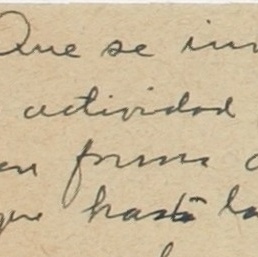 Que se in
actividad
en forma
que hasta la